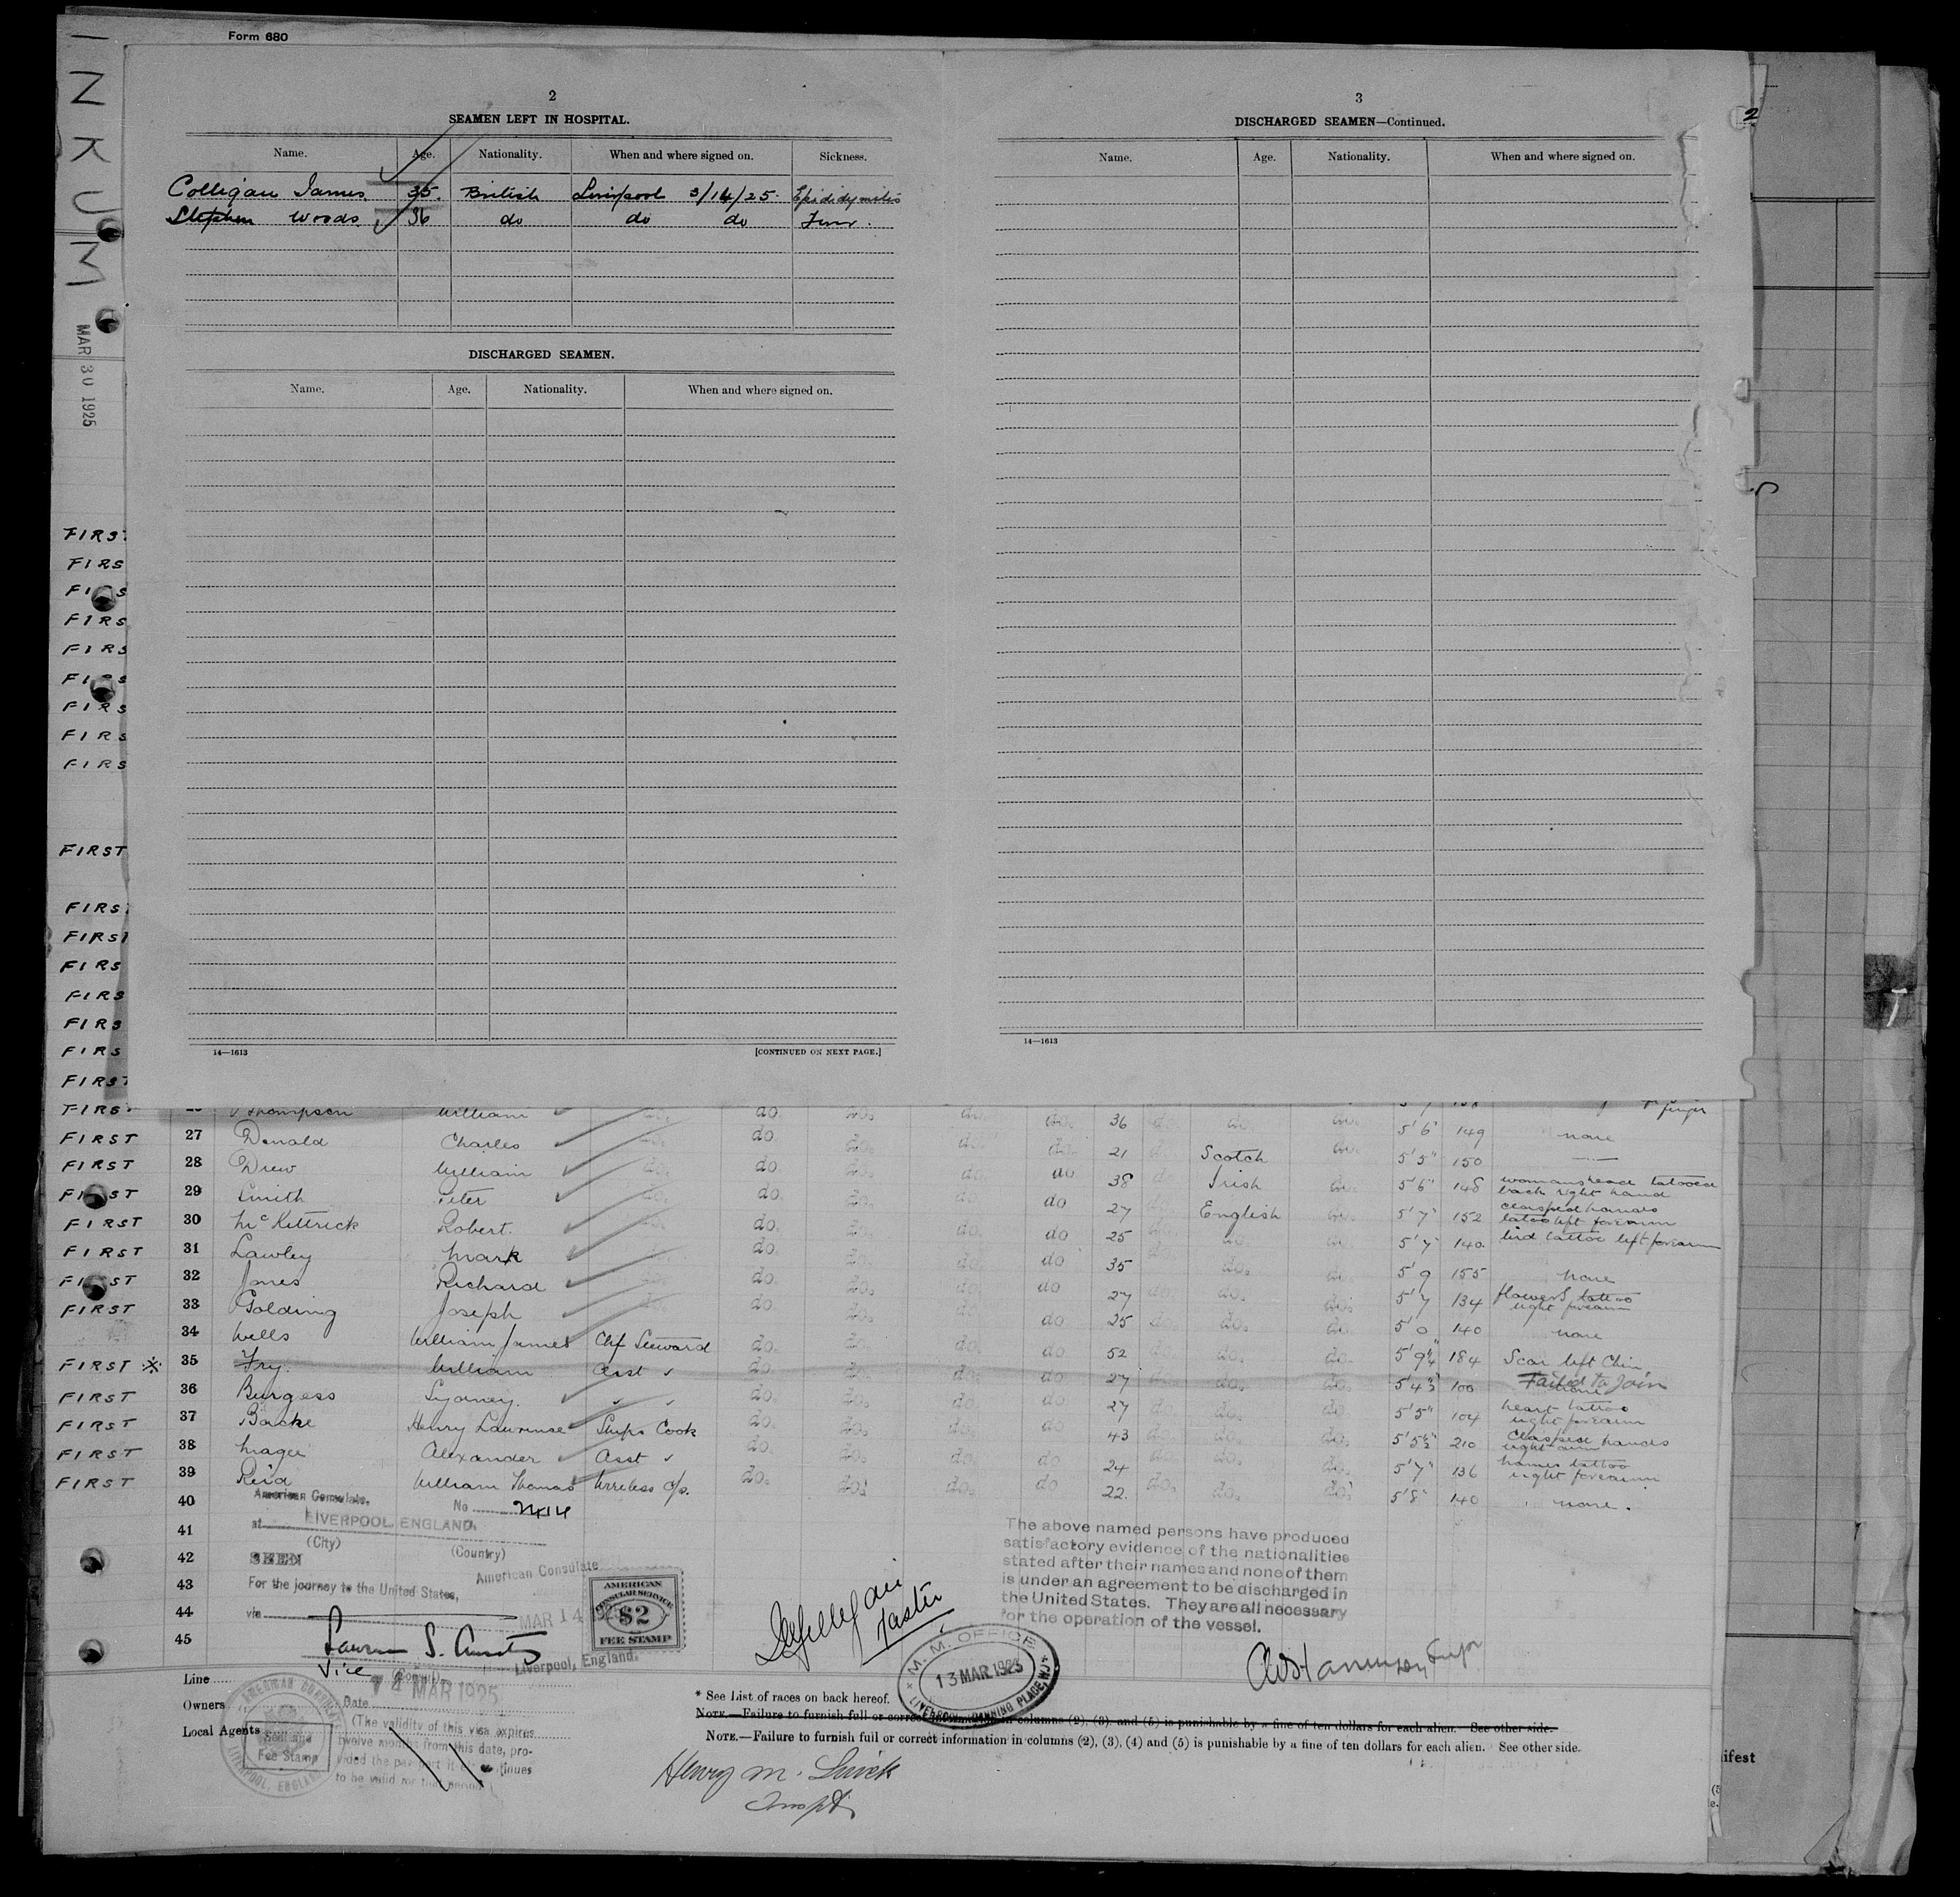 Form 680
INKUM
MAR 30 1925
2
SEAMEN LEFT IN HOSPITAL.
Name. Age. Nationality. When and where signed on. Sickness.
Colligan James. 35. British Liverpool 3/14/25. Epididymitis
Stephen Woods. 36 do do do
DISCHARGED SEAMEN.
Name. Age. Nationality. When and where signed on.
14—1613 [CONTINUED ON NEXT PAGE.]
3
DISCHARGED SEAMEN—Continued.
Name. Age. Nationality. When and where signed on.
14—1613
2
FIRST
FIRS
FIRS
FIRS
FIRS
FIRS
FIRS
FIRS
FIRST
FIRST
FIRST
FIRS
FIRS
FIRS
FIRS
FIRST
FIRST Thompson William do. do. do. do. 36 do. do. do. finger
FIRST 27 Donald Charles do. do. do. do. do. 21 do. Scotch do. 5'6" 149 none
FIRST 28 Drew William do. do. do. do. do 38 do. Irish do. 5'5" 150 —
FIRST 29 Smith Peter do. do. do. do. do 27 do. English do. 5'6" 148 womans head tatooed back right hand
FIRST 30 McKittrick Robert. do. do. do. do. do 25 do. do. do. 5'7" 152 clasped hands tatoo left forearm
FIRST 31 Lawley Mark do. do. do. do. do 35 do. do. do. 5'7" 140. bird tattoo left forearm
FIRST 32 Jones Richard do. do. do. do. do 27 do. do. do. 5'9 155 none
FIRST 33 Golding Joseph do. do. do. do. do 25 do. do. do. 5'7 134 flowers tattoo right forearm
34 Wells William James Chf Steward do. do. do. do 52 do. do. do. 5'0 140 none
FIRST 35 Fry. William Asst " do. do. do. do 27 do. do. do. 184 Scar left Chin
FIRST 36 Burgess Sydney. " " do. do. do. do 27 do. do. do. 100 Failed to Join
FIRST 37 Backe Henry Lawrence Ships Cook do. do. do. do 43 do. do. do. 5'5" 104 heart tattoo right forearm
FIRST 38 Magee Alexander Asst " do. do. do. do 24 do. do. do. 210 Clasped hands right arm
FIRST 39 Reid William Thomas Wireless o/p. do. do. do. do 22. do. do. do. 5'7" 136 names tattoo right forearm
40 5'8" 140 none.
41
42
43
44
45
American Consulate,
No 2414
at LIVERPOOL, ENGLAND.
(City) (Country)
SEEN
For the journey to the United States,
via
Vice (Consul)
14 MAR 1925
Date
(The validity of this visa expires
twelve months from this date, pro-
vided the passport it continues
to be valid for that period.)
American Consulate
MAR 14 1925
Liverpool, England.
AMERICAN
CONSULAR SERVICE
$2
FEE STAMP
Seal and
Fee Stamp
AMERICAN CONSULATE
LIVERPOOL, ENGLAND
Master
M. M. OFFICE
13 MAR 1925
LIVERPOOL, CANNING PLACE
The above named persons have produced
satisfactory evidence of the nationalities
stated after their names and none of them
is under an agreement to be discharged in
the United States. They are all necessary
for the operation of the vessel.
Supt
Line
Owners
Local Agents
* See List of races on back hereof.
NOTE.—Failure to furnish full or correct information in columns (2), (3), and (5) is punishable by a fine of ten dollars for each alien. See other side.
NOTE.—Failure to furnish full or correct information in columns (2), (3), (4) and (5) is punishable by a fine of ten dollars for each alien. See other side.
Henry M.
Inspt.
ifest